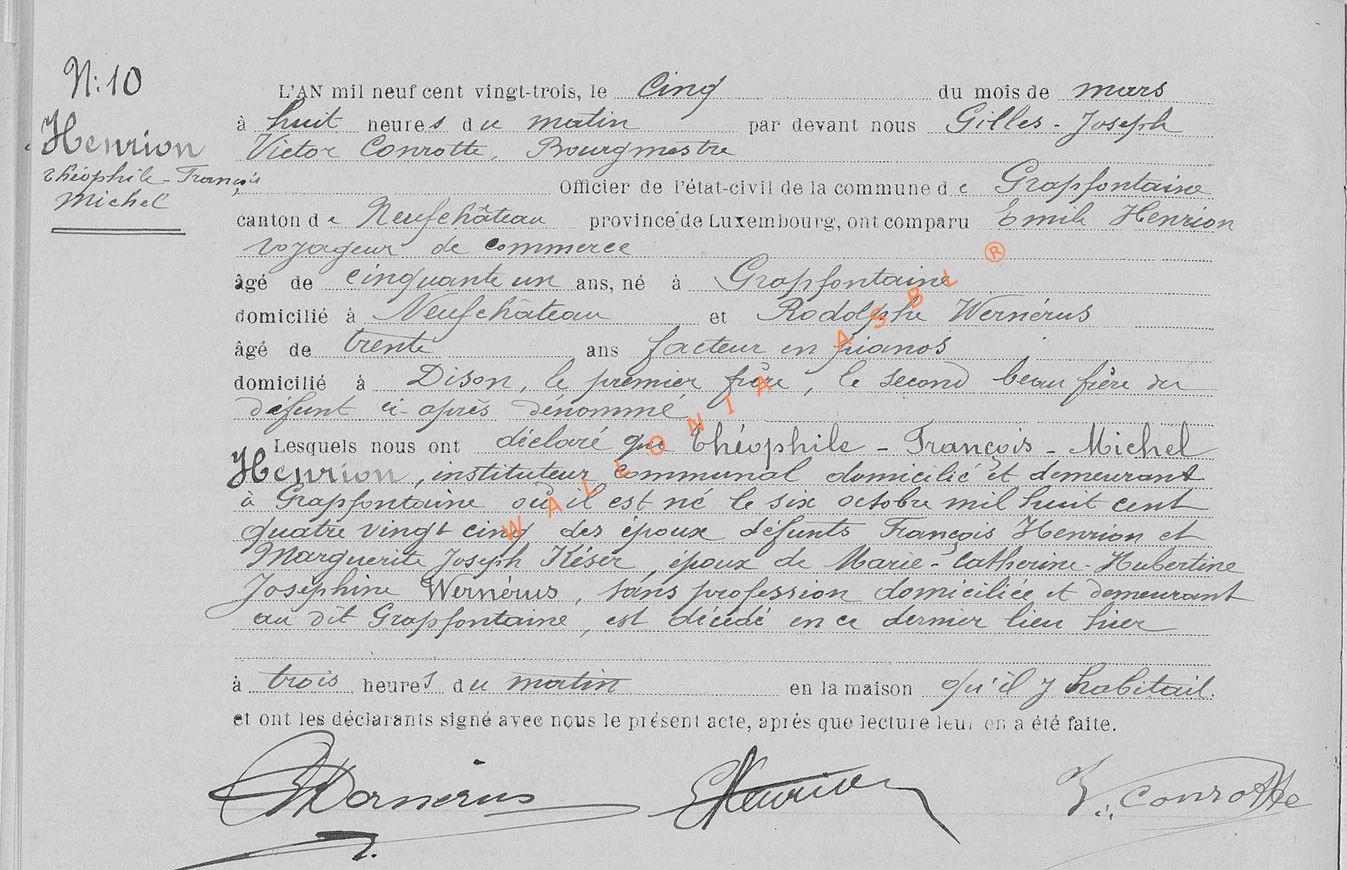 N: 10
Henrion
Théophile-François
Michel
L'AN mil neuf cent vingt-trois, le Cinq du mois de mars
à huit heures du matin par devant nous Gilles-Joseph
Victor Conrotte, Bourgmestre
Officier de l'état-civil de la commune de Grapfontaine
canton de Neufchâteau province de Luxembourg, ont comparu Emile Henrion
voyageur de commerce
âgé de cinquante un ans, né à Grapfontaine
domicilié à Neufchâteau et Rodolphe Wernérus
âgé de trente ans facteur en pianos
domicilié à Dison, le premier frère, le second beau frère du
défunt ci-après dénommé
Lesquels nous ont déclaré que Théophile-François-Michel
Henrion, instituteur communal domicilié et demeurant
à Grapfontaine où il est né le six octobre mil huit cent
quatre vingt cinq des époux défunts François Henrion et
Marguerite Joseph Késer, époux de Marie-Catherine-Hubertine
Joséphine Wernérus, sans profession domiciliée et demeurant
au dit Grapfontaine, est décédé en ce dernier lieu hier
à trois heures du matin en la maison qu'il y habitait.
et ont les déclarants signé avec nous le présent acte, après que lecture leur en a été faite.
Wernerus EHenrion V. Conrotte
WALLONIA ASBL ®